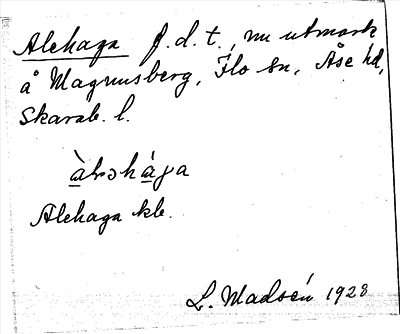 Alehaga f.d.t., nu utmark
å Magnusberg, Flo sn, Åse hd,
Skarab. l.
àləhága
Alehaga kb.
L. Madsén 1928